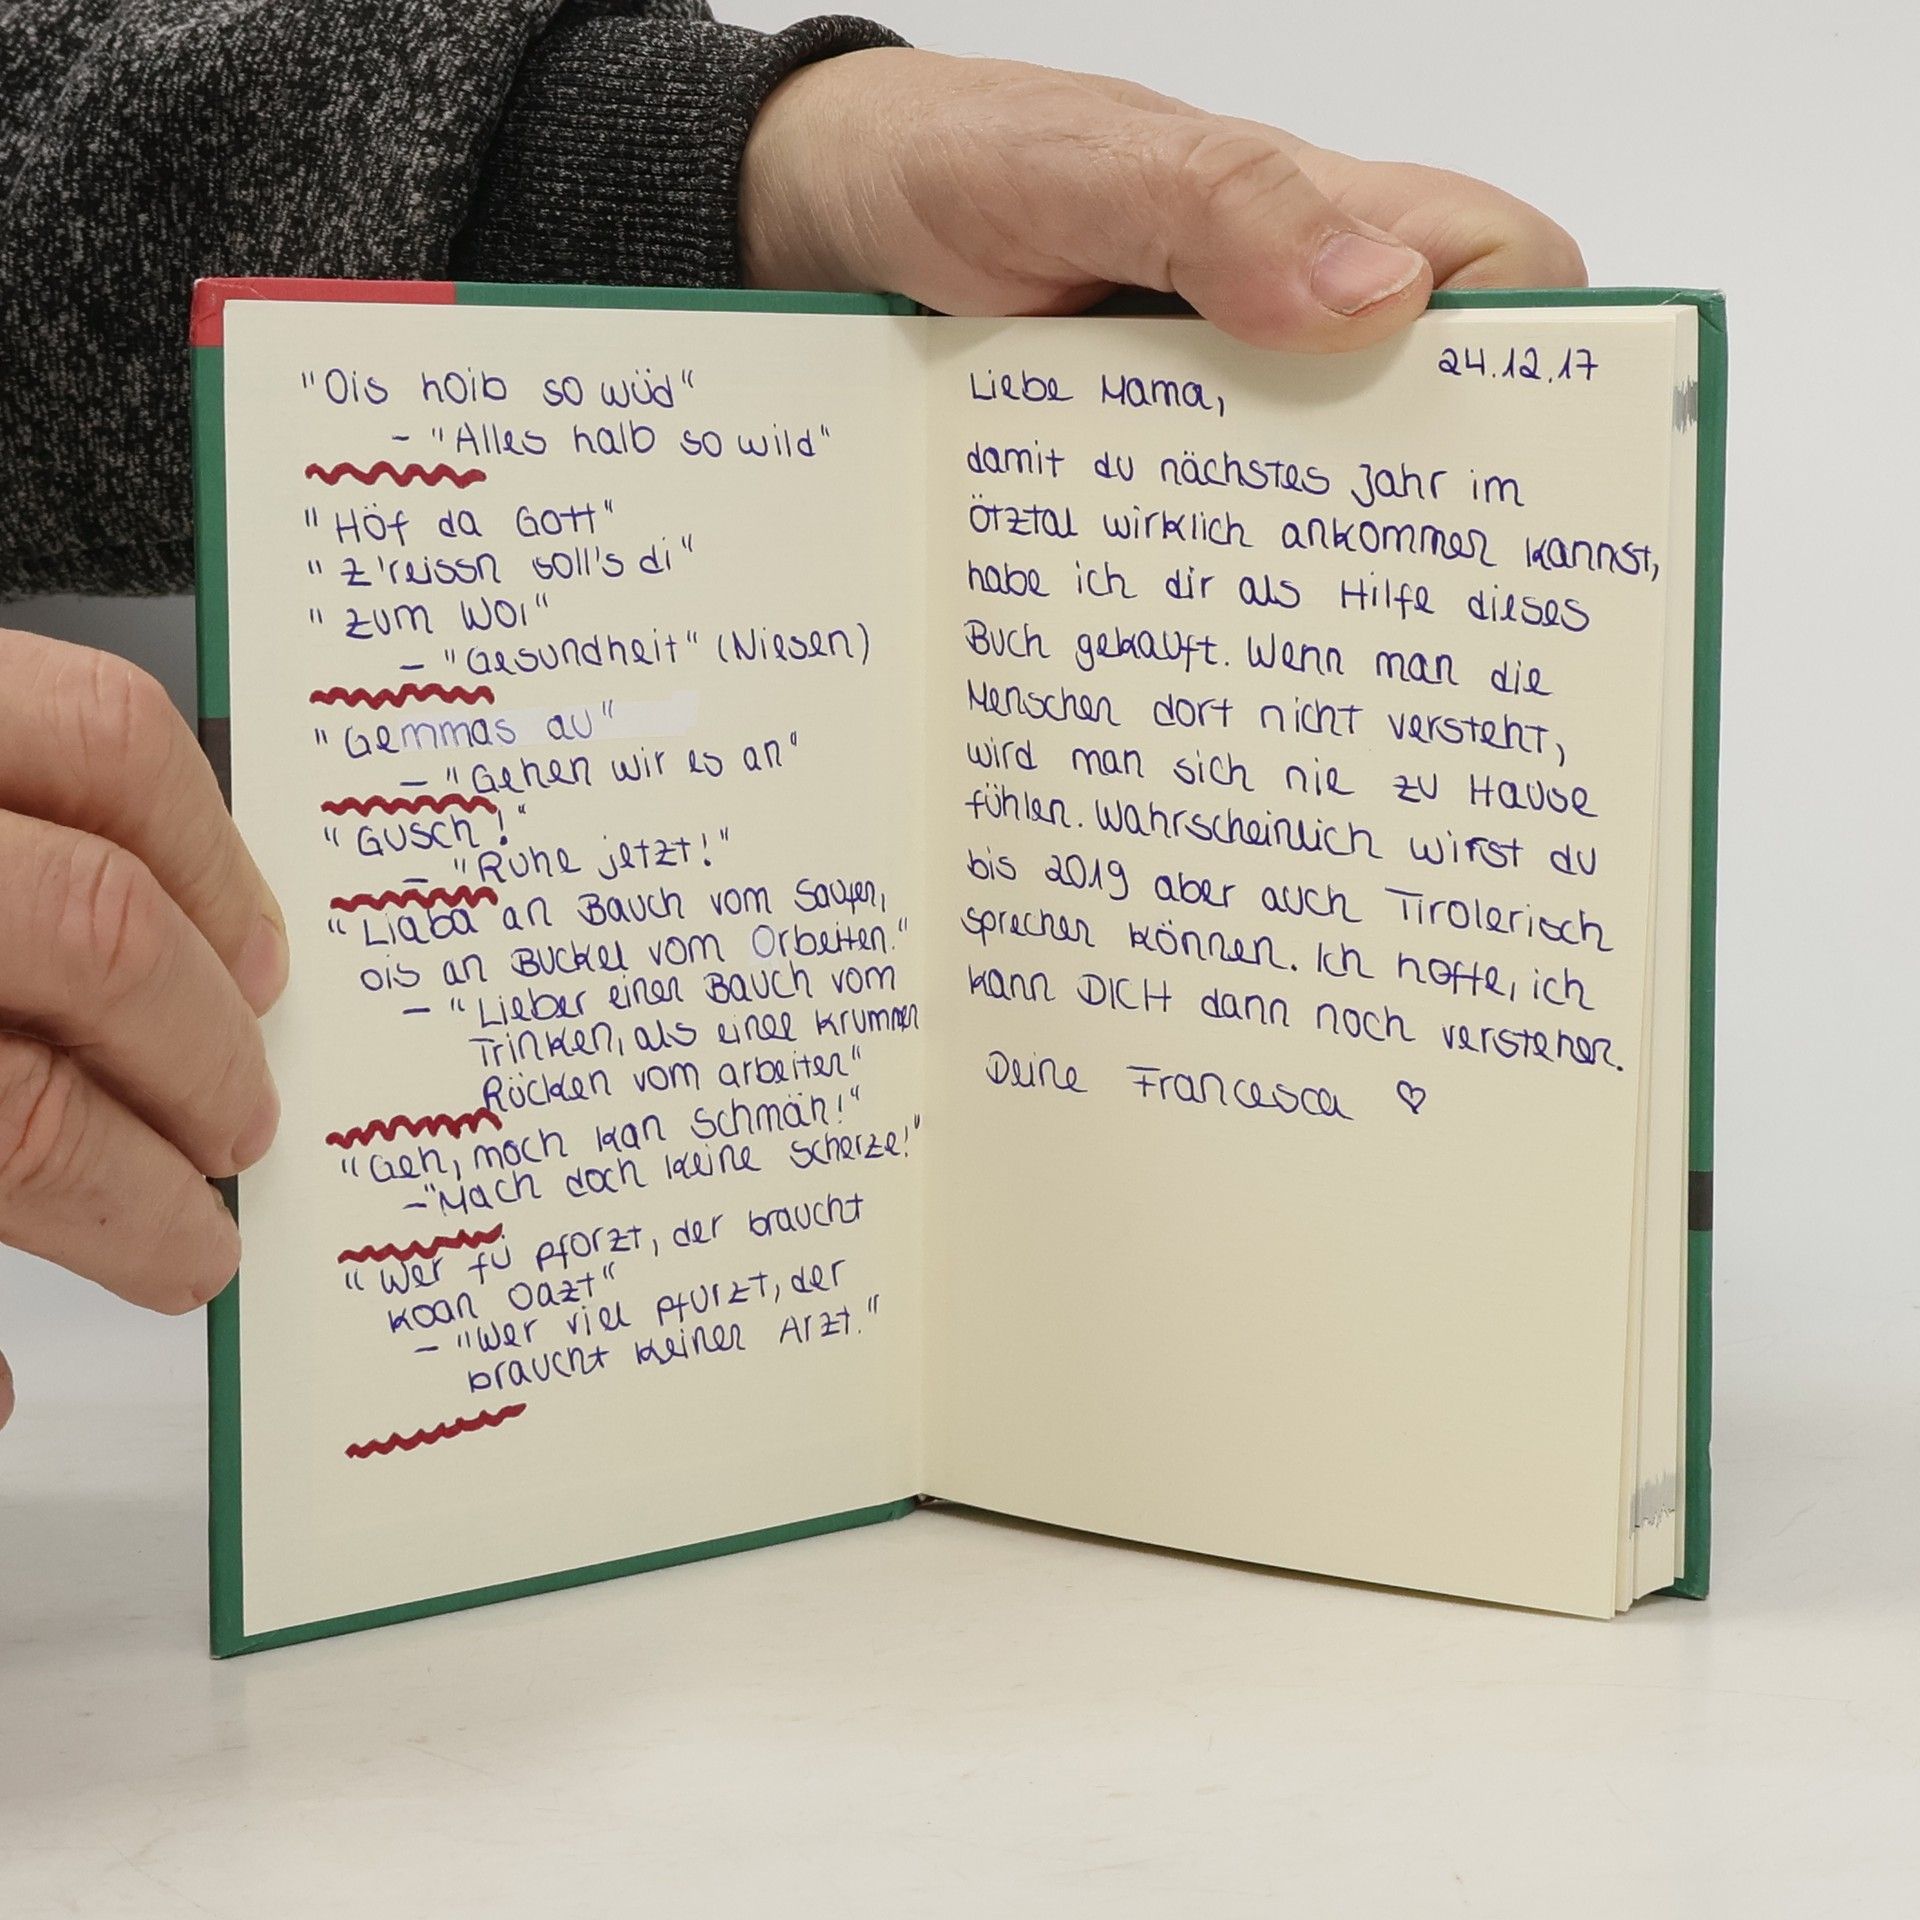 "Ois hoib so wüd"
- "Alles halb so wild"
"Höf da Gott"
"z'reissn soll's di"
"zum Woi"
- "Gesundheit" (Niesen)
"Gemmas au"
- "Gehen wir es an"
"Gusch!"
- "Ruhe jetzt!"
"Liaba an Bauch vom Saufen,
ois an Buckel vom Orbeiten."
- "Lieber einen Bauch vom
Trinken, als einen krummen
Rücken vom arbeiten"
"Geh, moch kan Schmäh!"
- "Mach doch keine Scherze!"
"Wer fü pforzt, der braucht
koan Oazt"
- "Wer viel pfurzt, der
braucht keinen Arzt."
24.12.17
Liebe Mama,
damit du nächstes Jahr im
Ötztal wirklich ankommen kannst,
habe ich dir als Hilfe dieses
Buch gekauft. Wenn man die
Menschen dort nicht versteht,
wird man sich nie zu Hause
fühlen. Wahrscheinlich wirst du
bis 2019 aber auch Tirolerisch
sprechen können. Ich hoffe, ich
kann DICH dann noch verstehen.
Deine Francesca ♡